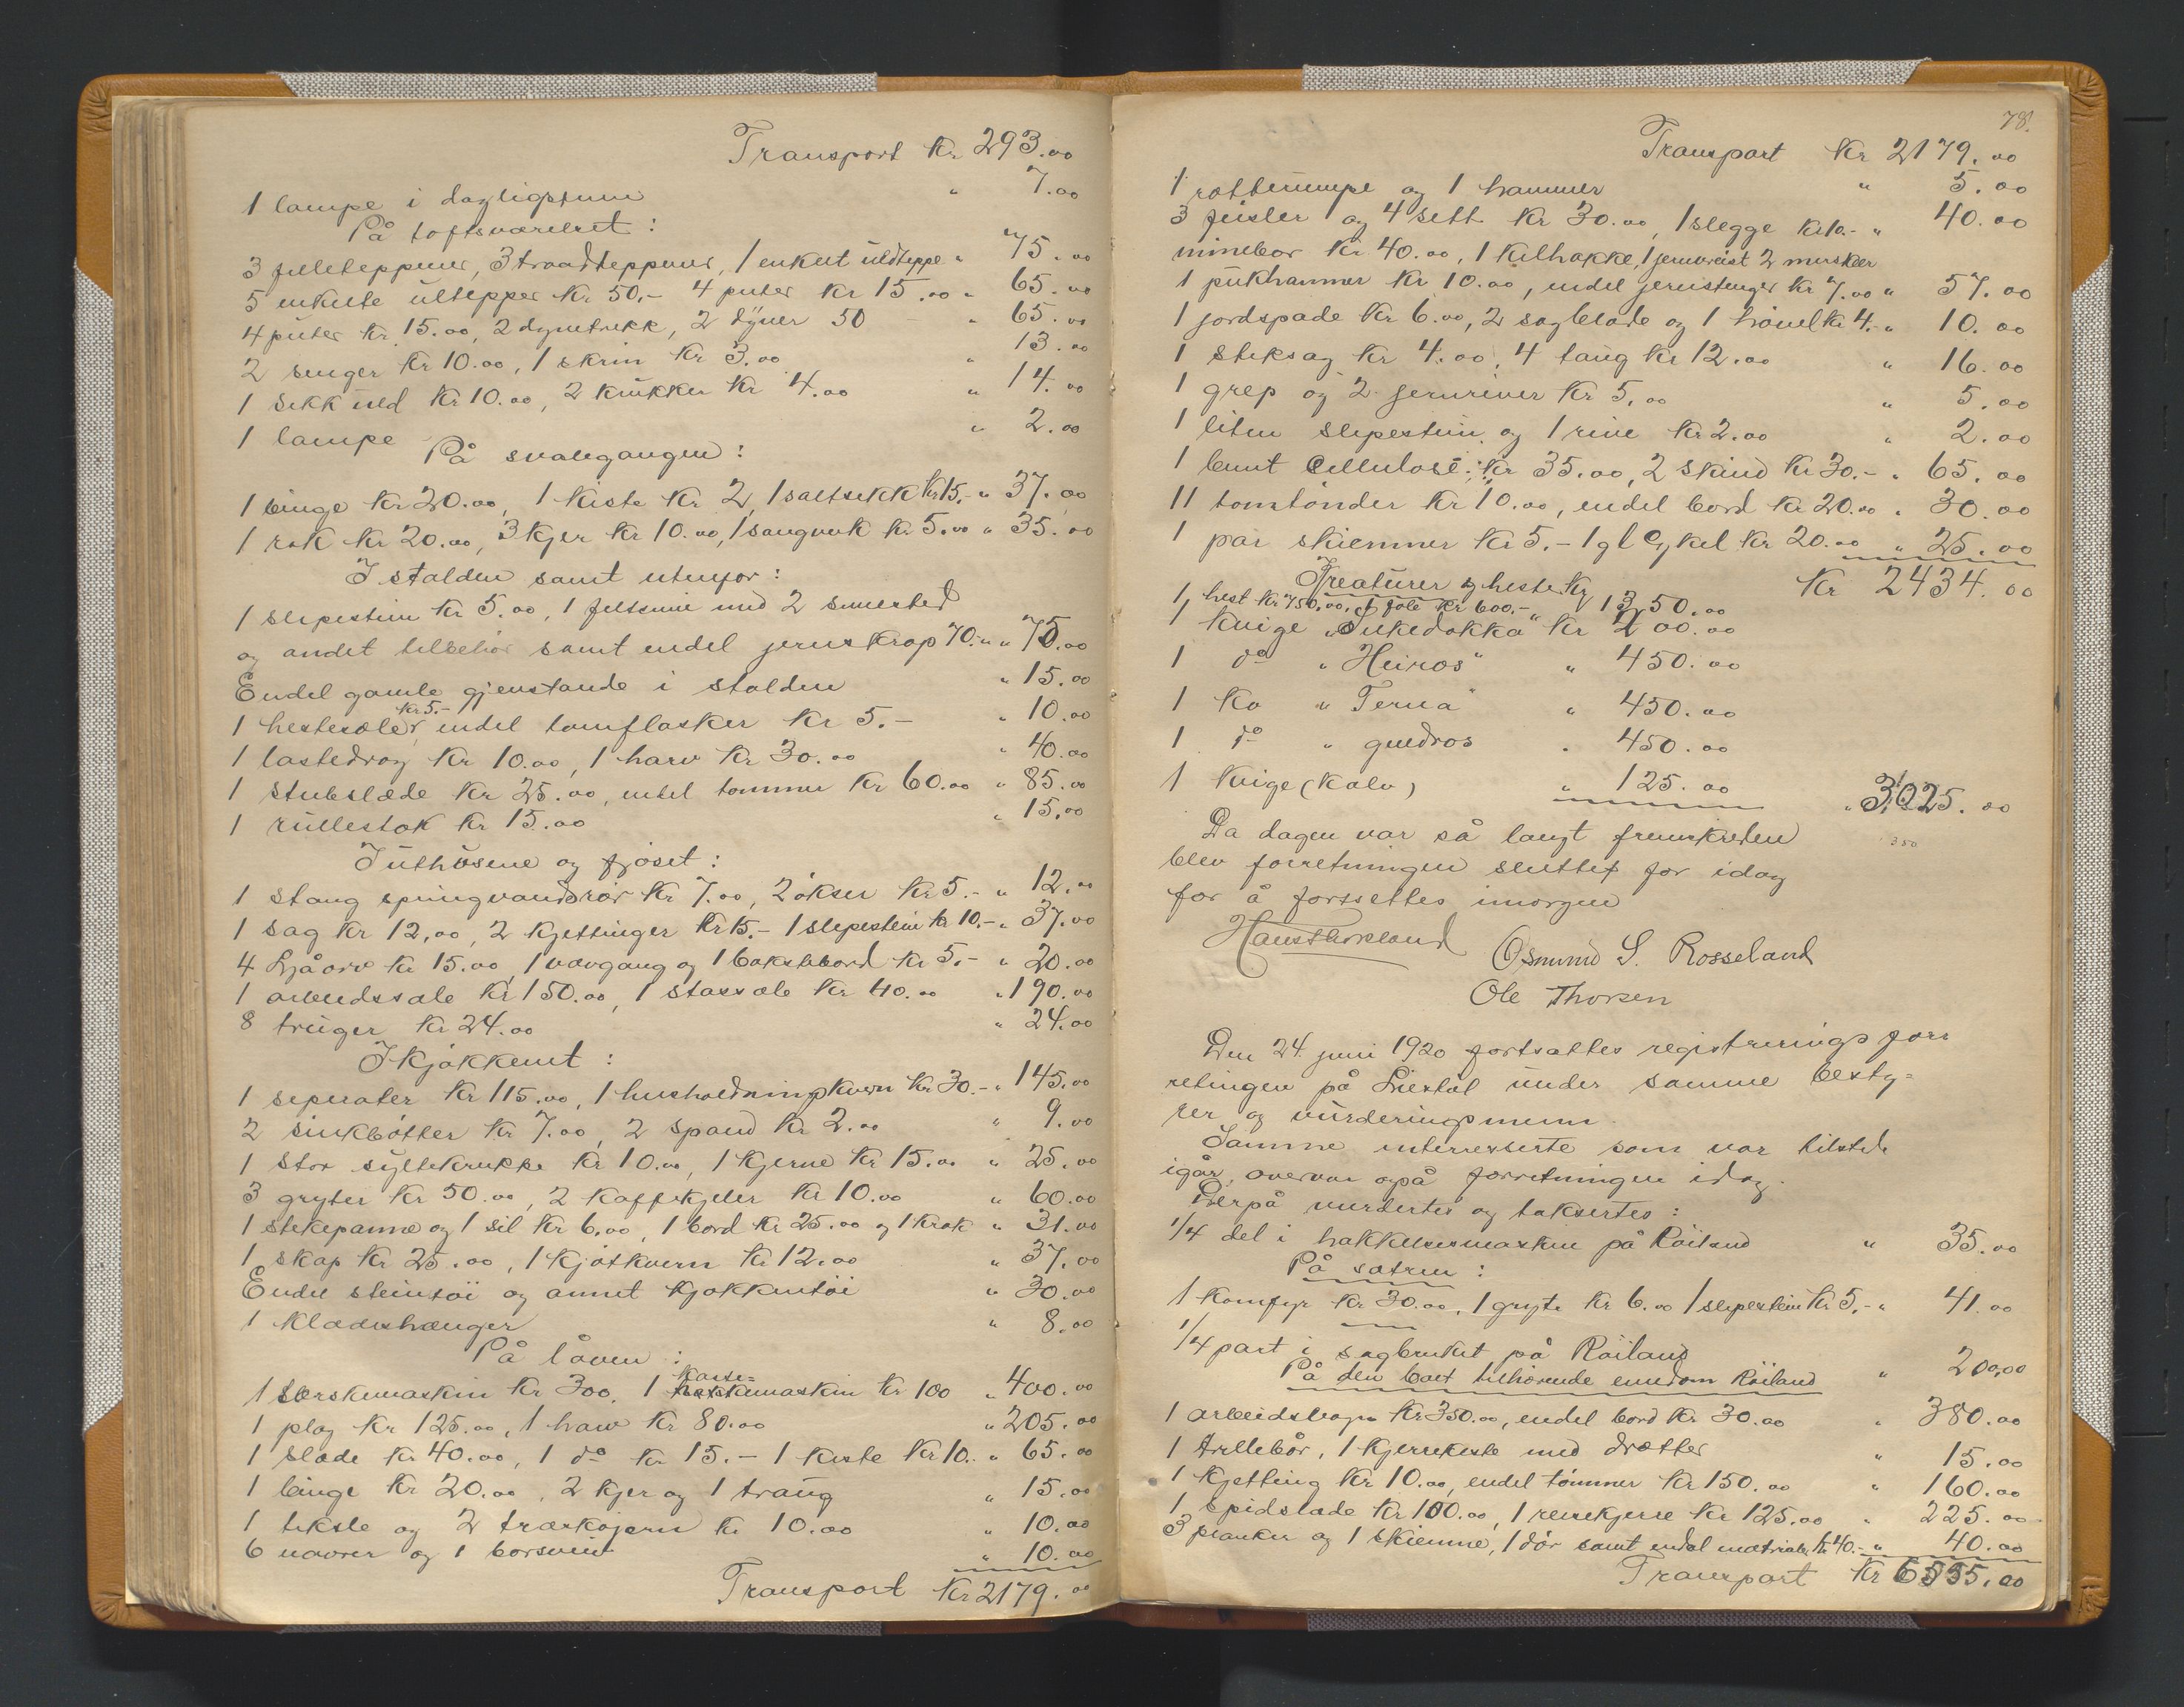 Transport Kr 293.00
1 lampe i dagligstuen " 7.00
På loftsværelset:
3 felleteppener, 3 traadteppener, 1 enkelt uldteppe " 75.00
5 enkelte ultepper Kr 50,- 4 puter Kr 15.00 " 65.00
4 puter Kr 15.00, 2 dynetrekk, 2 dyner 50 " 65.00
2 senger Kr 10.00, 1 skrin Kr 3.00 " 13.00
1 sekk uld Kr 10.00, 2 krukker Kr 4.00 " 14.00
1 lampe " 2.00
På svalegangen:
1 binge Kr 20.00, 1 kiste Kr 2, 1 saltsekk Kr 15.- " 37.00
1 rok Kr 20.00, 3 kjer Kr 10.00, 1 Kr 5.00 " 35.00
I stalden samt utenfor:
1 slepestein Kr 5.00, 1 feltsmie med 2 smiested
og andet tilbehør samt endel jernskrap 70.- " 75.00
Endel gamle gjenstande i stalden " 15.00
1 hesteseler Kr 5.-, endel tomflasker Kr 5.- " 10.00
1 lastedrog Kr 10.00, 1 harv Kr 30.00 " 40.00
1 stubslæde Kr 25.00, endel tømmer Kr 60.00 " 85.00
1 rullestok Kr 15.00 " 15.00
I uthusene og fjøset:
1 stang springvandsrør Kr 7.00, 2 økser Kr 5.- " 12.00
1 sag Kr 12.00, 2 kjettinger Kr 15.- 1 slepestein Kr 10.- " 37.00
4 Ljåorv Kr 15.00, 1 vævgang og 1 bakstebord Kr 5.- " 20.00
1 arbeidssæle Kr 150.00, 1 stassæle Kr 40.00 " 190.00
8 truger Kr 24.00 " 24.00
I kjøkkenet:
1 seperater Kr 115.00, 1 husholdningskvern Kr 30.- " 145.00
2 sinkbøtter Kr 7.00, 2 spand Kr 2.00 " 9.00
1 stor syltekrukke Kr 10.00, 1 kjerne Kr 15.00 " 25.00
3 gryter Kr 50.00, 2 kaffekjeler Kr 10.00 " 60.00
1 stekepanne og 1 sil Kr 6.00, 1 bord Kr 25.00 og 1 krak " 31.00
1 skap Kr 25.00, 1 kjøtkvern Kr 12.00 " 37.00
Endel steintøi og annet kjøkkentøi " 30.00
1 klædeshænger " 8.00
På låven:
1 tærskemaskin Kr 300, 1 kastemaskin Kr 100 " 400.00
1 plog Kr 125.00, 1 harv Kr 80.00 " 205.00
1 slæde Kr 40.00, 1 do Kr 15.- 1 kiste Kr 10.- " 65.00
1 binge Kr 20.00, 2 kjer og 1 traug " 15.00
1 teksle og 2 Kr 10.00 " 10.00
6 navrer og 1 borsvein " 10.00
Transport Kr 2179.00
78.
Transport Kr 2179.00
1 rotterumpe og 1 hammer " 5.00
3 feisler og 4 sett Kr 30.00, 1 slegge Kr 10.- " 40.00
minebor Kr 40.00, 1 kilhakke, 1 jernureist 2
1 pukhammer Kr 10.00, endel jernstenger Kr 7.00 " 57.00
1 jordspade Kr 6.00, 2 sagblade og 1 høvel Kr 4.- " 10.00
1 stiksag Kr 4.00, 4 taug Kr 12.00 " 16.00
1 grep og 2 jernriver Kr 5.00 " 5.00
1 liten slepestein og 1 rive Kr 2.00 " 2.00
1 bunt Cellulose: Kr 35.00, 2 skind Kr 30.- " 65.00
11 tomtønder Kr 10.00, endel bord Kr 20.00 " 30.00
1 par skiemmer Kr 5.- 1 gl Cykel Kr 20.00 " 25.00
Kreaturer og heste Kr 2434.00
1, hest Kr 750.00, 1 fole Kr 600.- Kr 1350.00
1 kvige "Sukedokka" Kr 200.00
1 do "Heiros" " 450.00
1 ko "Terna" " 450.00
1 do " guldros " 450.00
1 kvige (kalv) " 125.00 " 3025.00
350
Da dagen var så langt fremskreden
blev forretningen sluttet for idag
for å forssettes imorgen
Hans Thorsland Osmund S. Rosseland
Ole Thorsen
Den 24. juni 1920 fortsattes registrerings forr
retingen på Liestøl under samme besty=
rer og vurderingsmenn.
Samme interesserte som var tilstede
igår, overvar også forretningen idag.
Derpå vurdertes og taksertes:
1/4 del i hakkelsesmaskin på Röiland " 35.00
På sætren:
1 komfyr Kr 30.00, 1 gryte Kr 6.00 1 slepestein Kr 5,- " 41.00
1/4 part i sagbruket på Röiland " 200,00
På den boet tilhørende eiendom Röiland
1 arbeidsvogn Kr 350.00, endel bord Kr 30.00 " 380.00
1 trillebår, 1 kjerrekiste med drætter " 15.00
1 kjetting Kr 10.00, endel tømmer Kr 150.00 " 160.00
1 spidslæde Kr 100.00, 1 reisekjerre Kr 125.00 " 225.00
3 planker og 1 skiemme, 1 dør samt endel matrialer Kr 40.- " 40.00
Transport Kr 6555.00